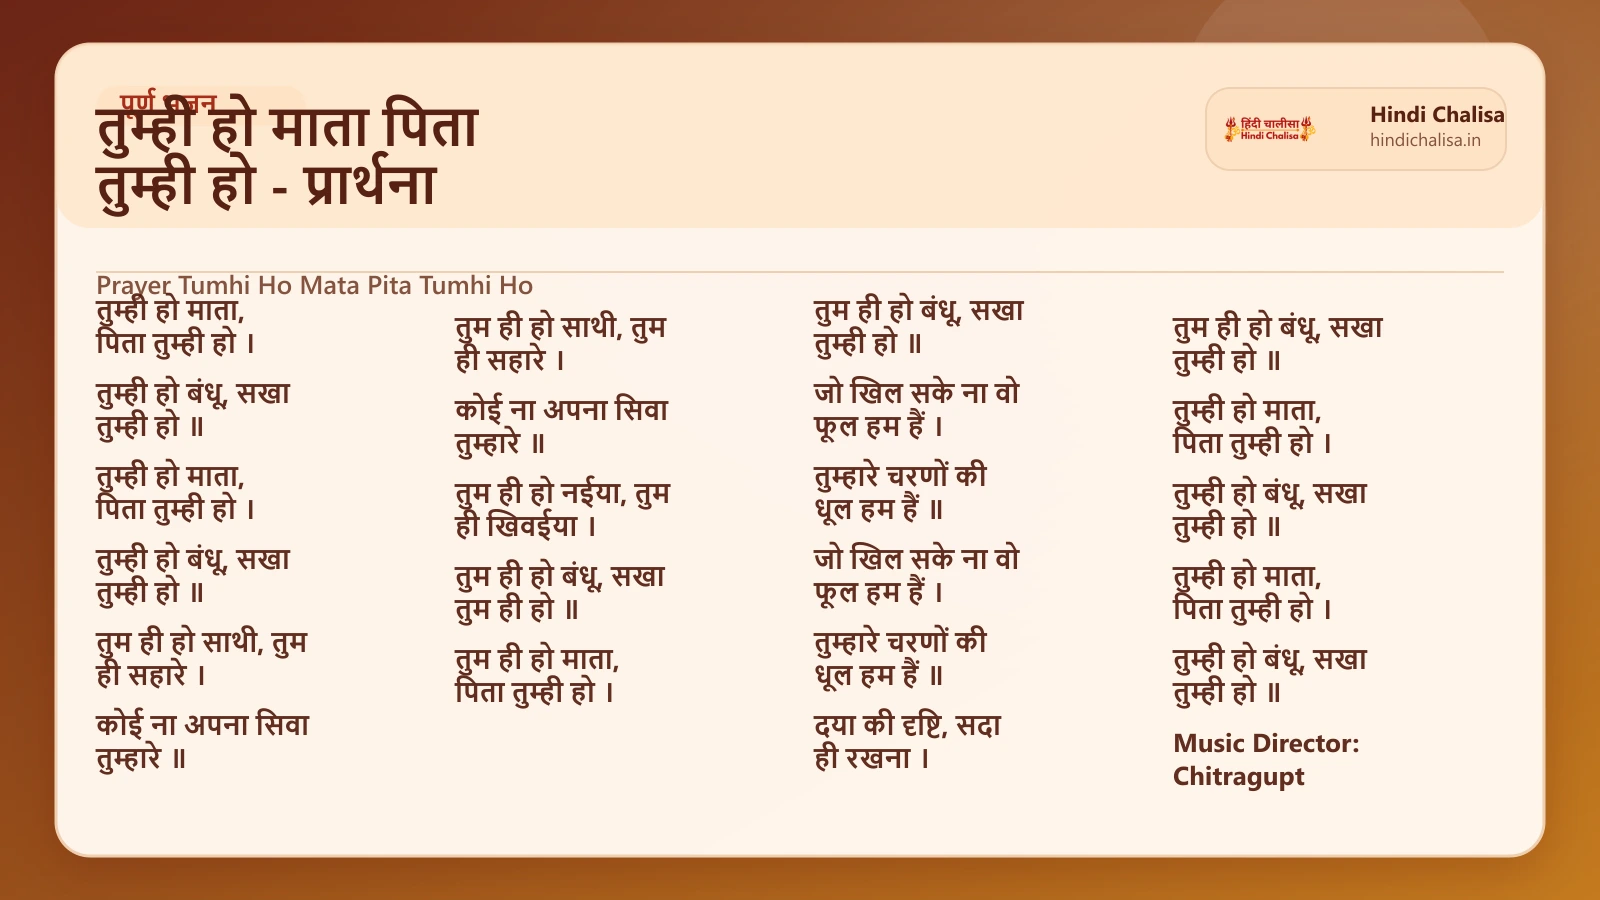 पूर्ण भजन
तुम्ही हो माता पिता
तुम्ही हो - प्रार्थना
हिंदी चालीसा
Hindi Chalisa
Hindi Chalisa
hindichalisa.in
Prayer Tumhi Ho Mata Pita Tumhi Ho
तुम्ही हो माता,
पिता तुम्ही हो ।
तुम्ही हो बंधू, सखा
तुम्ही हो ॥
तुम्ही हो माता,
पिता तुम्ही हो ।
तुम्ही हो बंधू, सखा
तुम्ही हो ॥
तुम ही हो साथी, तुम
ही सहारे ।
कोई ना अपना सिवा
तुम्हारे ॥
तुम ही हो साथी, तुम
ही सहारे ।
कोई ना अपना सिवा
तुम्हारे ॥
तुम ही हो नईया, तुम
ही खिवईया ।
तुम ही हो बंधू, सखा
तुम ही हो ॥
तुम ही हो माता,
पिता तुम्ही हो ।
तुम ही हो बंधू, सखा
तुम्ही हो ॥
जो खिल सके ना वो
फूल हम हैं ।
तुम्हारे चरणों की
धूल हम हैं ॥
जो खिल सके ना वो
फूल हम हैं ।
तुम्हारे चरणों की
धूल हम हैं ॥
दया की दृष्टि, सदा
ही रखना ।
तुम ही हो बंधू, सखा
तुम्ही हो ॥
तुम्ही हो माता,
पिता तुम्ही हो ।
तुम्ही हो बंधू, सखा
तुम्ही हो ॥
तुम्ही हो माता,
पिता तुम्ही हो ।
तुम्ही हो बंधू, सखा
तुम्ही हो ॥
Music Director:
Chitragupt